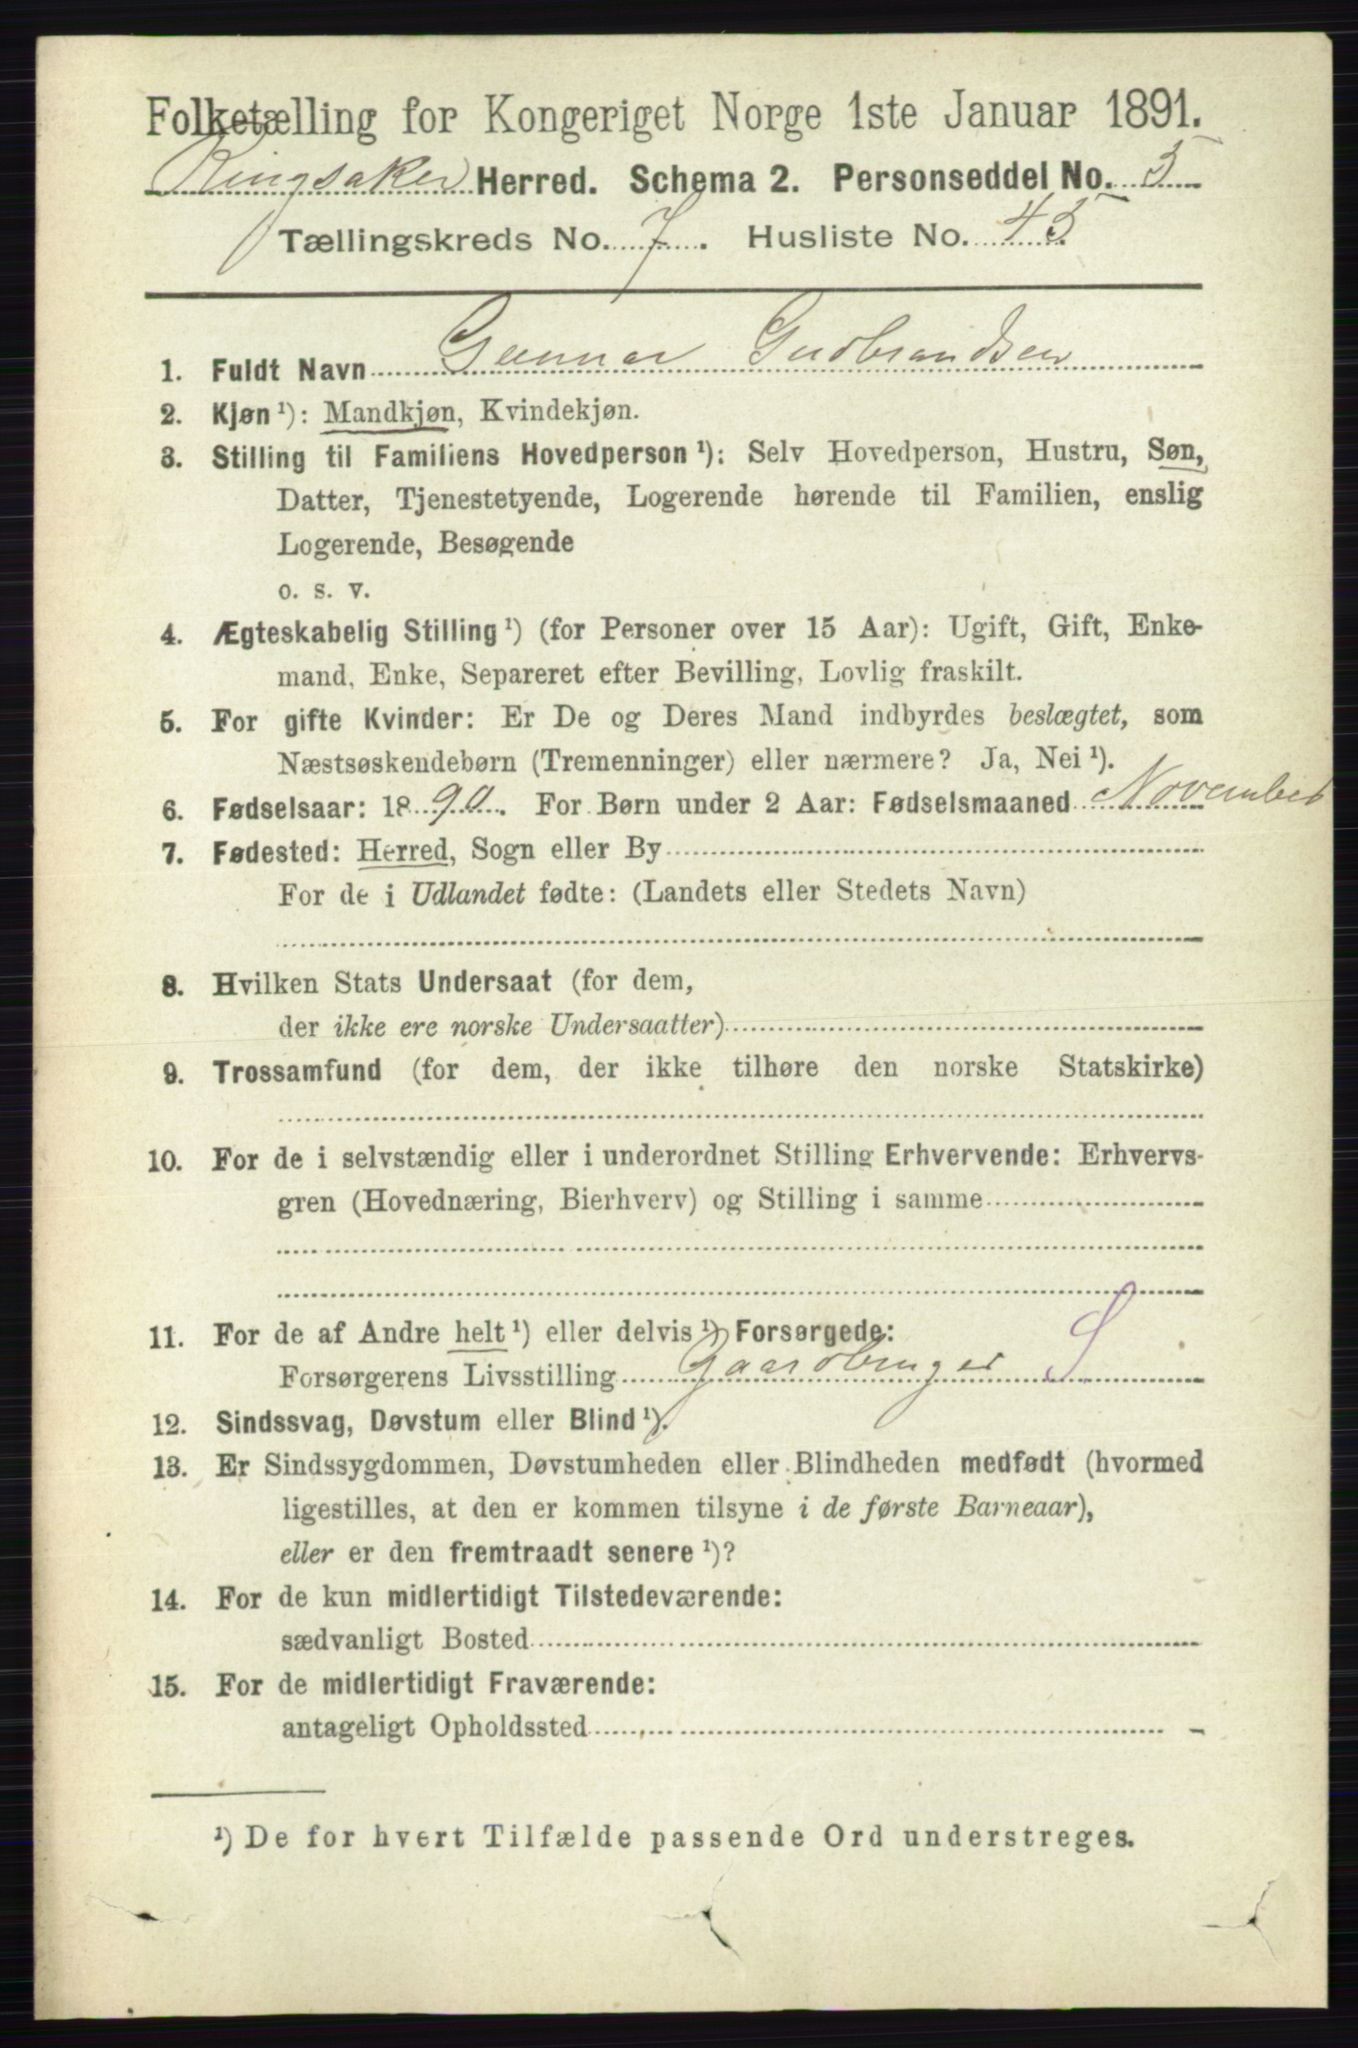 Folketælling for Kongeriget Norge 1ste Januar 1891.
Ringsaker Herred. Schema 2. Personseddel No. 5
Tællingskreds No. 7. Husliste No. 45
1. Fuldt Navn Gunnar Gudbrandsen
2. Kjøn ¹): Mandkjøn, Kvindekjøn.
3. Stilling til Familiens Hovedperson ¹): Selv Hovedperson, Hustru, Søn,
Datter, Tjenestetyende, Logerende hørende til Familien, enslig
Logerende, Besøgende
o. s. v.
4. Ægteskabelig Stilling ¹) (for Personer over 15 Aar): Ugift, Gift, Enke-
mand, Enke, Separeret efter Bevilling, Lovlig fraskilt.
5. For gifte Kvinder: Er De og Deres Mand indbyrdes beslægtet, som
Næstsøskendebørn (Tremenninger) eller nærmere? Ja, Nei ¹).
6. Fødselsaar: 1890. For Børn under 2 Aar: Fødselsmaaned November
7. Fødested: Herred, Sogn eller By
For de i Udlandet fødte: (Landets eller Stedets Navn)
8. Hvilken Stats Undersaat (for dem,
der ikke ere norske Undersaatter)
9. Trossamfund (for dem, der ikke tilhøre den norske Statskirke)
10. For de i selvstændig eller i underordnet Stilling Erhvervende: Erhvervs-
gren (Hovednæring, Bierhverv) og Stilling i samme
11. For de af Andre helt ¹) eller delvis ¹) Forsørgede:
Forsørgerens Livsstilling Gaardbruger S
12. Sindssvag, Døvstum eller Blind ¹).
13. Er Sindssygdommen, Døvstumheden eller Blindheden medfødt (hvormed
ligestilles, at den er kommen tilsyne i de første Barneaar),
eller er den fremtraadt senere ¹)?
14. For de kun midlertidigt Tilstedeværende:
sædvanligt Bosted
15. For de midlertidigt Fraværende:
antageligt Opholdssted
¹) De for hvert Tilfælde passende Ord understreges.